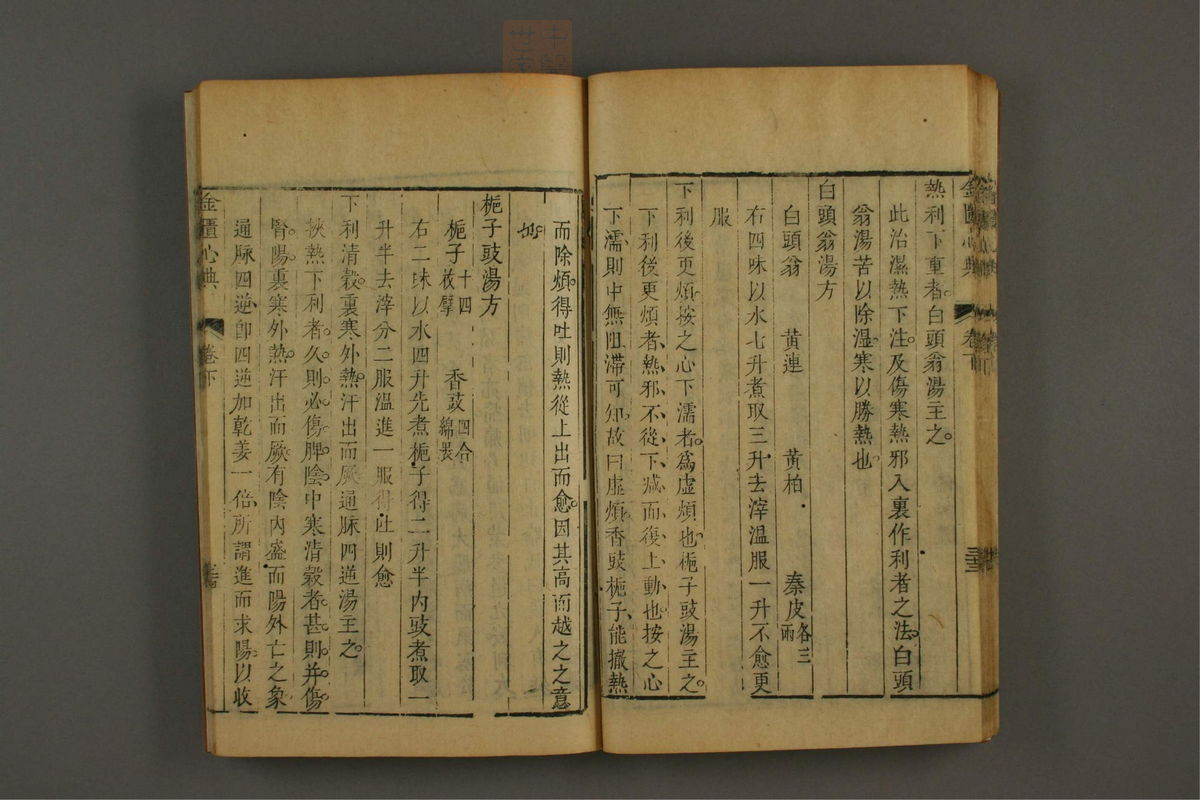 金匱心典
卷下
熱利下重者白頭翁湯主之
此治濕熱下注及傷寒熱邪入裏作利者之法白頭
翁湯苦以除濕寒以勝熱也
白頭翁湯方
白頭翁 黃連 黃柏 秦皮各三兩
右四味以水七升煮取三升去滓温服一升不愈更
服
下利後更煩按之心下濡者為虛煩也梔子豉湯主之
下利後更煩者熱邪不從下減而復上動也按之心
下濡則中無阻滯可知故曰虛煩香豉梔子能撤熱
而除煩得吐則熱從上出而愈因其高而越之之意
也
梔子豉湯方
梔子十四枚擘 香豉四合綿裹
右二味以水四升先煮梔子得二升半内豉煮取一
升半去滓分二服温進一服得吐則愈
下利清穀裏寒外熱汗出而厥通脉四逆湯主之
挾熱下利者久則必傷脾陰中寒清穀者甚則并傷
腎陽裏寒外熱汗出而厥有陰内盛而陽外亡之象
通脉四逆即四逆加乾姜一倍所謂進而求陽以收
金匱心典
卷下